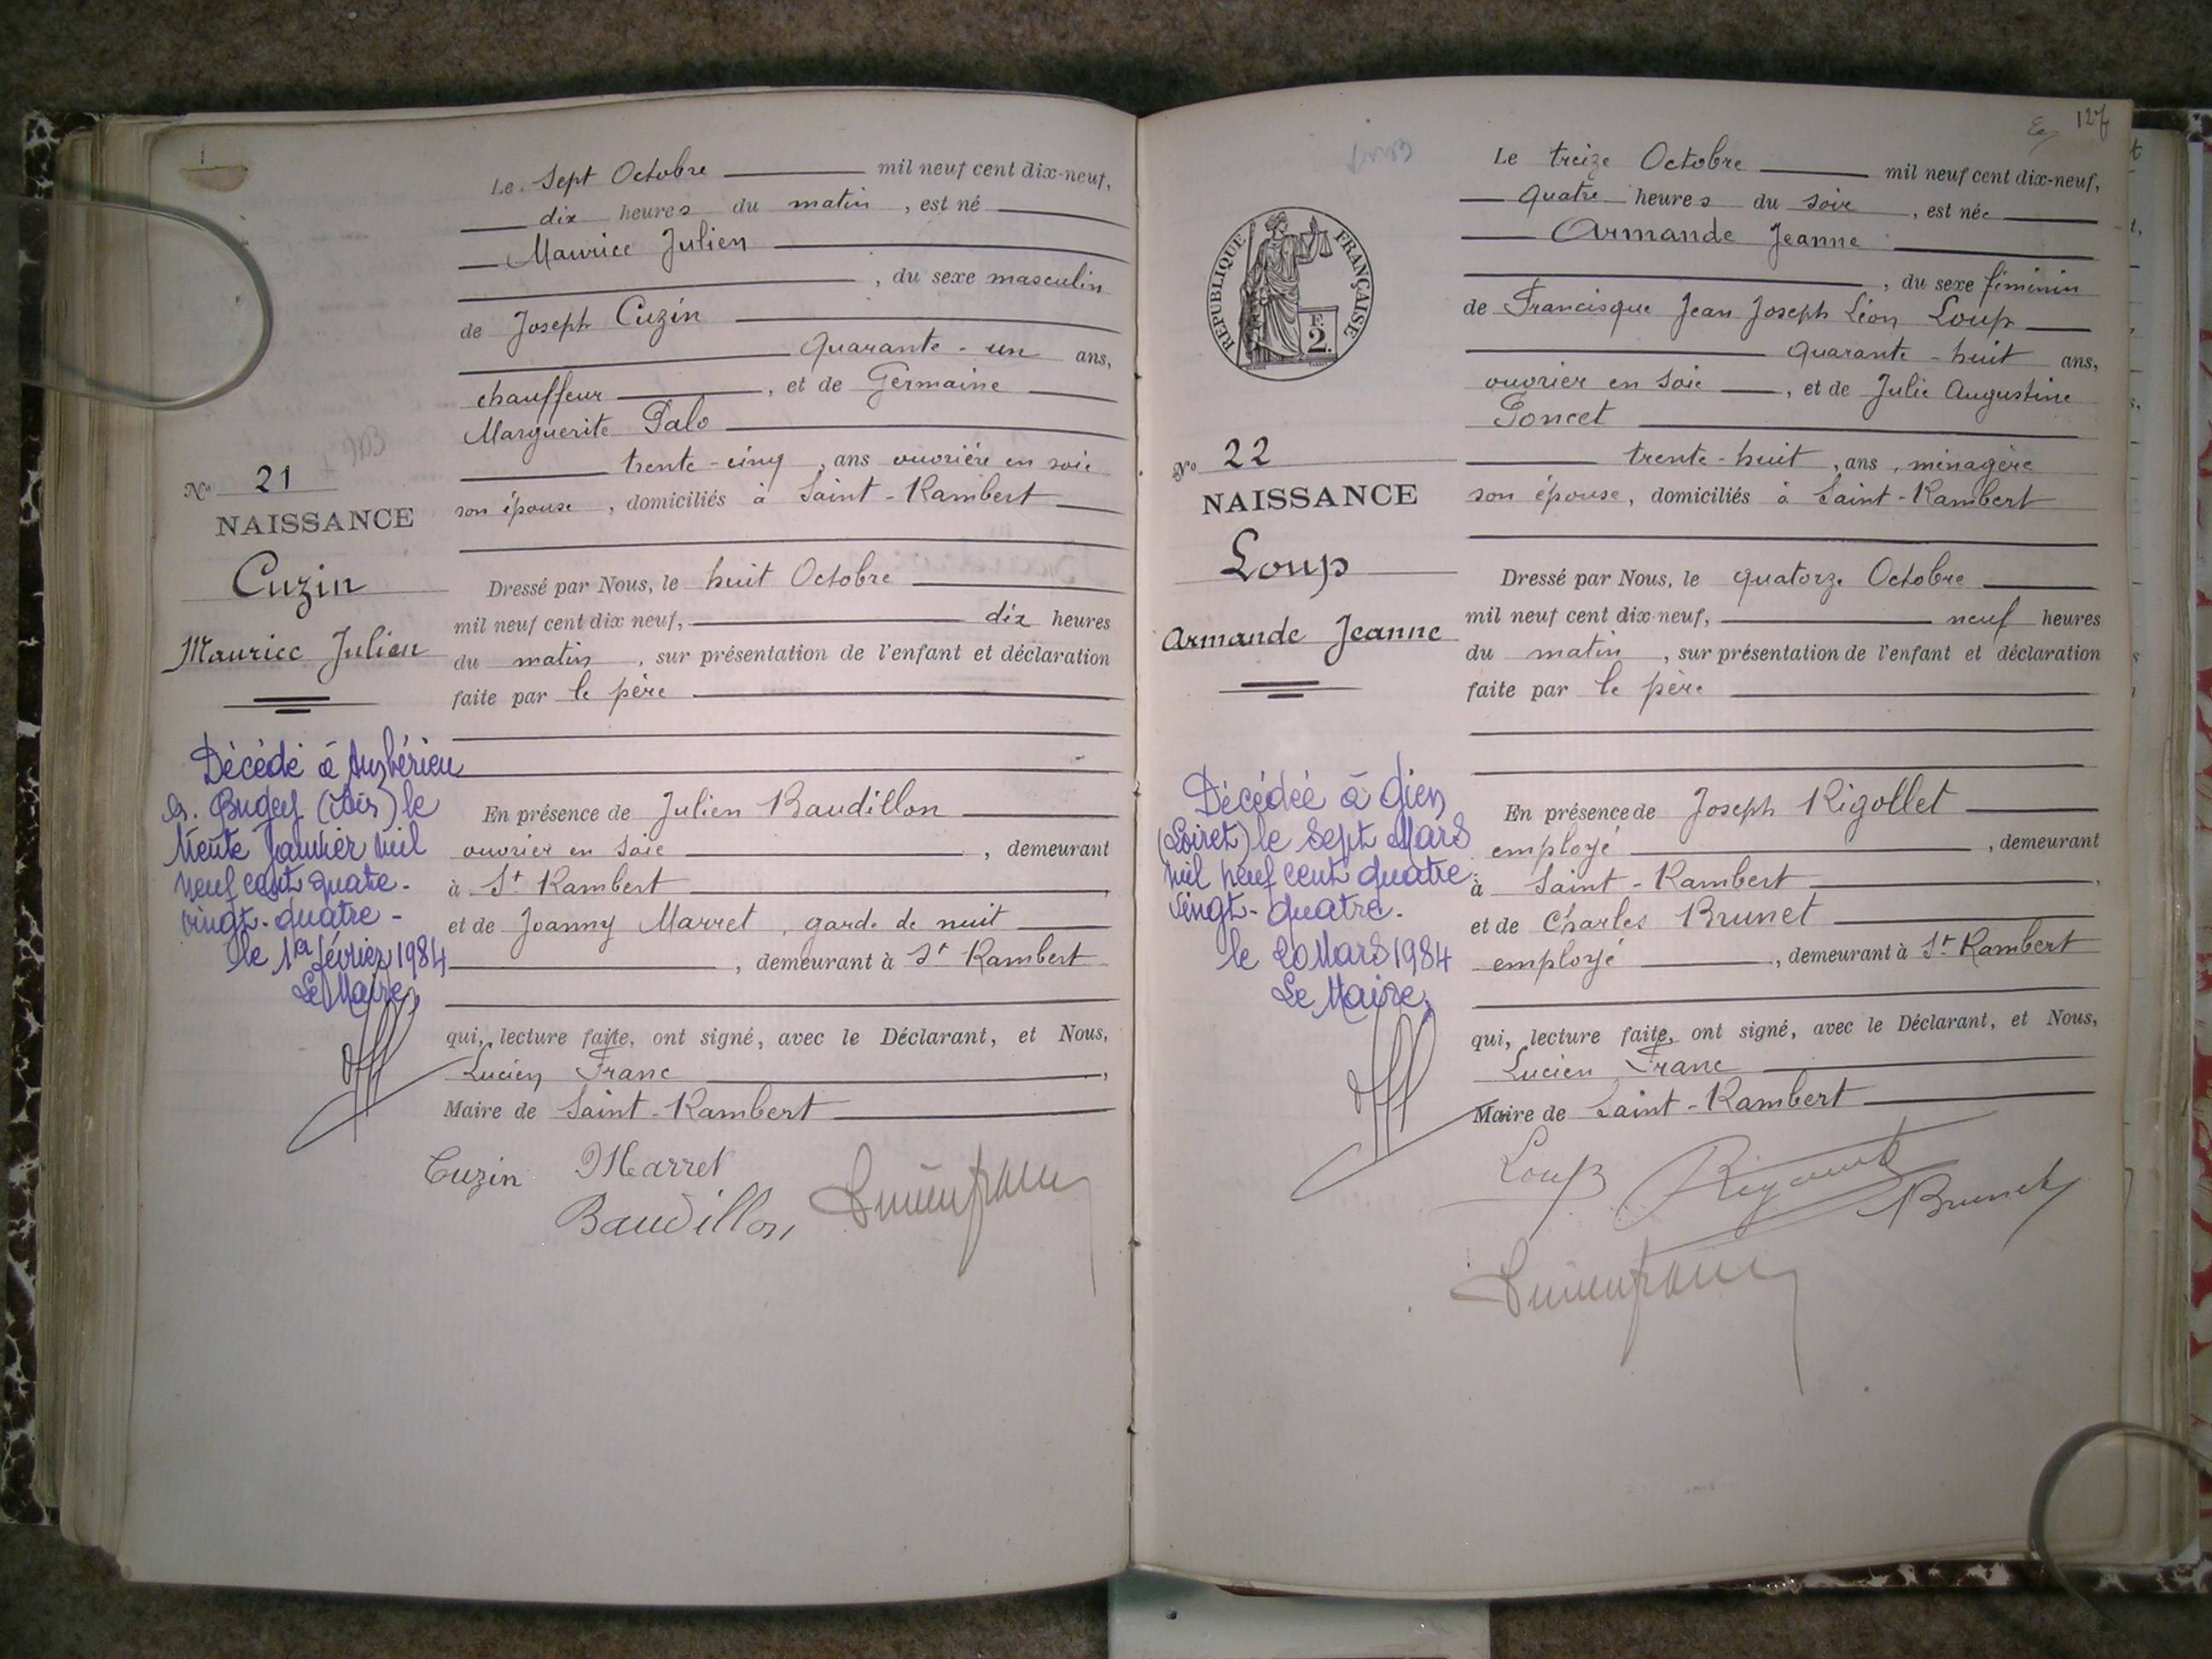 Le Sept Octobre mil neuf cent dix-neuf,
dix heures du matin, est né
Maurice Julien
, du sexe masculin
de Joseph Cuzin
Quarante-un ans,
chauffeur, et de Germaine
Marguerite Palo
trente-cinq, ans ouvrière en soie
son épouse, domiciliés à Saint-Rambert
No 21
NAISSANCE
Cuzin
Maurice Julien
Dressé par Nous, le huit Octobre
mil neuf cent dix neuf, dix heures
du matin, sur présentation de l'enfant et déclaration
faite par le père
Décédé à Ambérieu
en Bugey (Ain) le
trente Janvier mil
neuf cent quatre-
vingt-quatre-
le 1er février 1984
Le Maire,
En présence de Julien Baudillon
ouvrier en soie, demeurant
à St Rambert,
et de Joanny Marret, garde de nuit
, demeurant à St Rambert
qui, lecture faite, ont signé, avec le Déclarant, et Nous,
Lucien Franc,
Maire de Saint-Rambert
Cuzin Marret
Baudillon Lucien franc
127
Le treize Octobre mil neuf cent dix-neuf,
quatre heures du soir, est née
Armande Jeanne
, du sexe féminin
de Francisque Jean Joseph Léon Loup
quarante-huit ans,
ouvrier en soie, et de Julie Augustine
Poncet
trente-huit, ans, ménagère
son épouse, domiciliés à Saint-Rambert
RÉPUBLIQUE FRANÇAISE
E.
2.
No 22
NAISSANCE
Loup
Armande Jeanne
Dressé par Nous, le quatorze Octobre
mil neuf cent dix-neuf, neuf heures
du matin, sur présentation de l'enfant et déclaration
faite par le père
Décédée à Gien
(Loiret) le Sept Mars
mil neuf cent quatre
vingt-quatre.
le 20 Mars 1984
Le Maire,
En présence de Joseph Rigollet
employé, demeurant
à Saint-Rambert,
et de Charles Brunet
employé, demeurant à St Rambert
qui, lecture faite, ont signé, avec le Déclarant, et Nous,
Lucien Franc
Maire de Saint-Rambert
Loup Brunet
Lucien franc